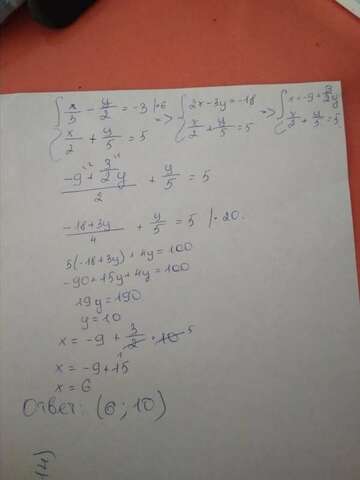 { x/3 - y/2 = -3 |·6 => { 2x-3y=-18 => { x=-9+3/2y
{ x/2 + y/5 = 5 { x/2 + y/5 = 5 { x/2 + y/5 = 5
(-9 + 3/2y)/2 + y/5 = 5
(-18+3y)/4 + y/5 = 5 |·20.
5(-18+3y)+4y=100
-90+15y+4y=100
19y=190
y=10
x = -9 + 3/2 · 10 5
1
x = -9+15
x = 6
Ответ: (6;10)
14)